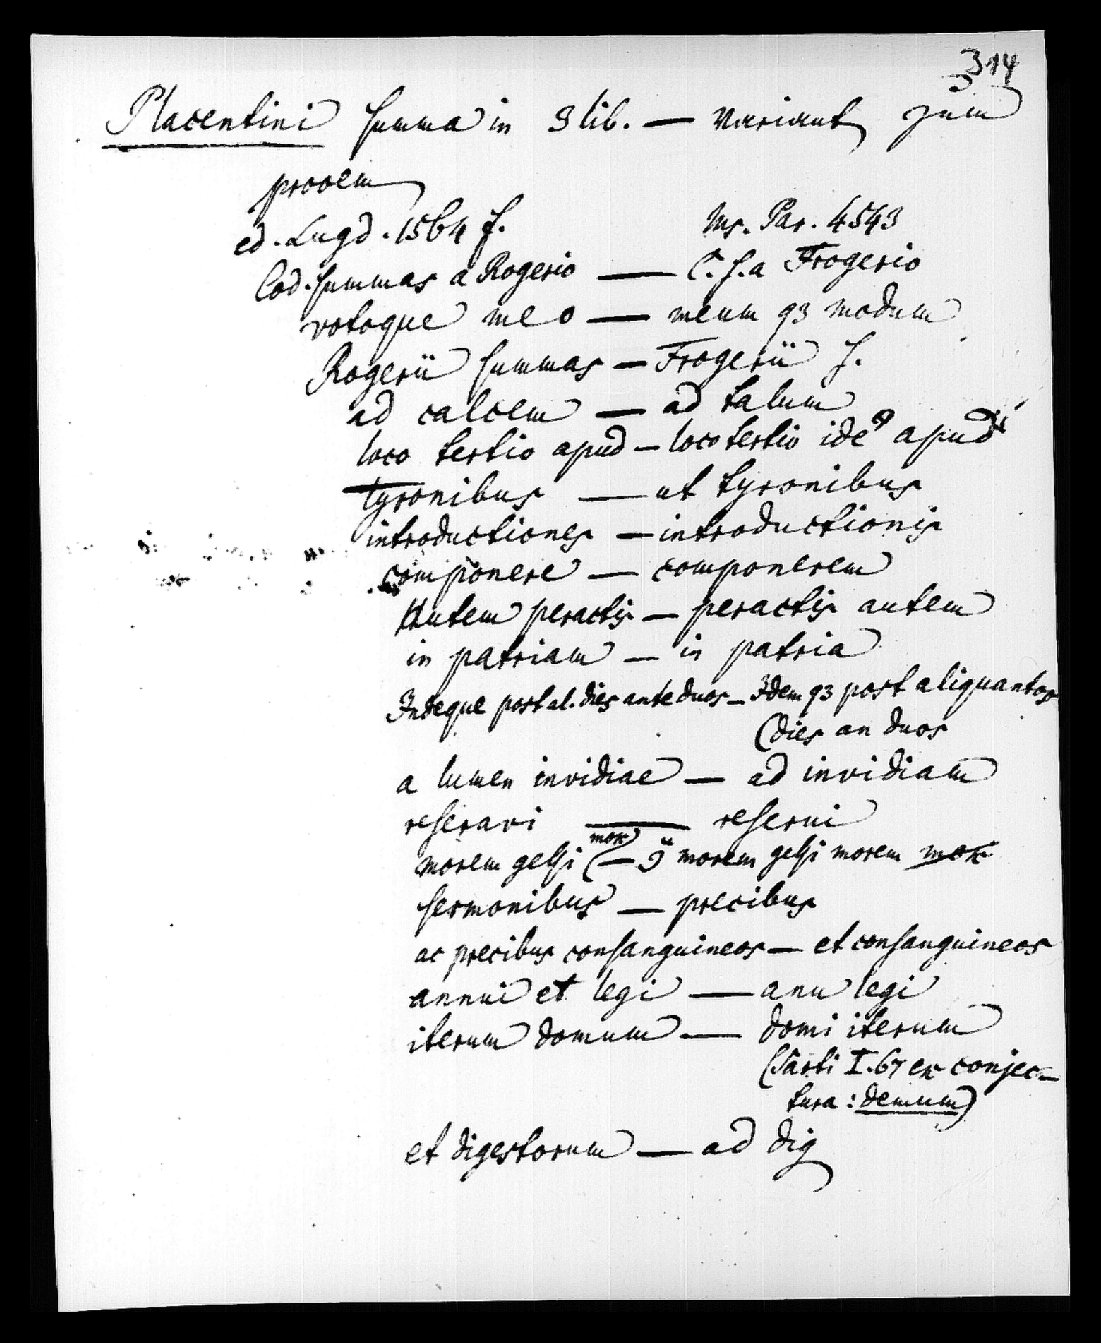 314
Placentini summa in 3 lib. — Variant zum
prooem
ed. Lugd. 1564 f. Ms. Par. 4543
Cod. summas a Rogerio — C. s. a Frogerio
votoque meo — meum q3 modum
Rogerii summas — Frogerii s.
ad calcem — ad talum
loco tertio apud — loco tertio ide⁹ apud
tyronibus — ut tyronibus
introductiones — introductionis
componere — componerem
Autem peractis — peractis autem
in patriam — in patria
Indeque post al. dies ante duos — Idem q3 post aliquantos
(dies an duos
a lumen invidiae — ad invidiam
reseravi — reserui
morem gessi (mox) — morem gessi morem mox
sermonibus — precibus
ac precibus consanguineos — et consanguineos
annui et legi — anu legi
iterum domum — domi iterum
(Sarti I. 67 ex conjec-
tura: demum)
et digestorum — ad dig